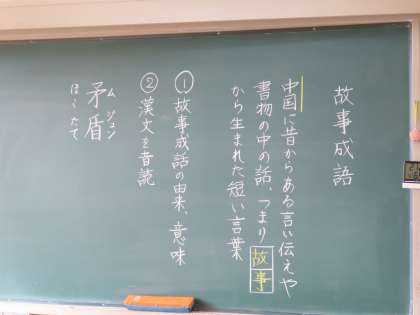 故事成語
中国に昔からある言い伝えや
書物の中の話、つまり故事
から生まれた短い言葉
①故事成話の由来、意味
②漢文を音読
矛盾
ム ジュン
ほこ たて